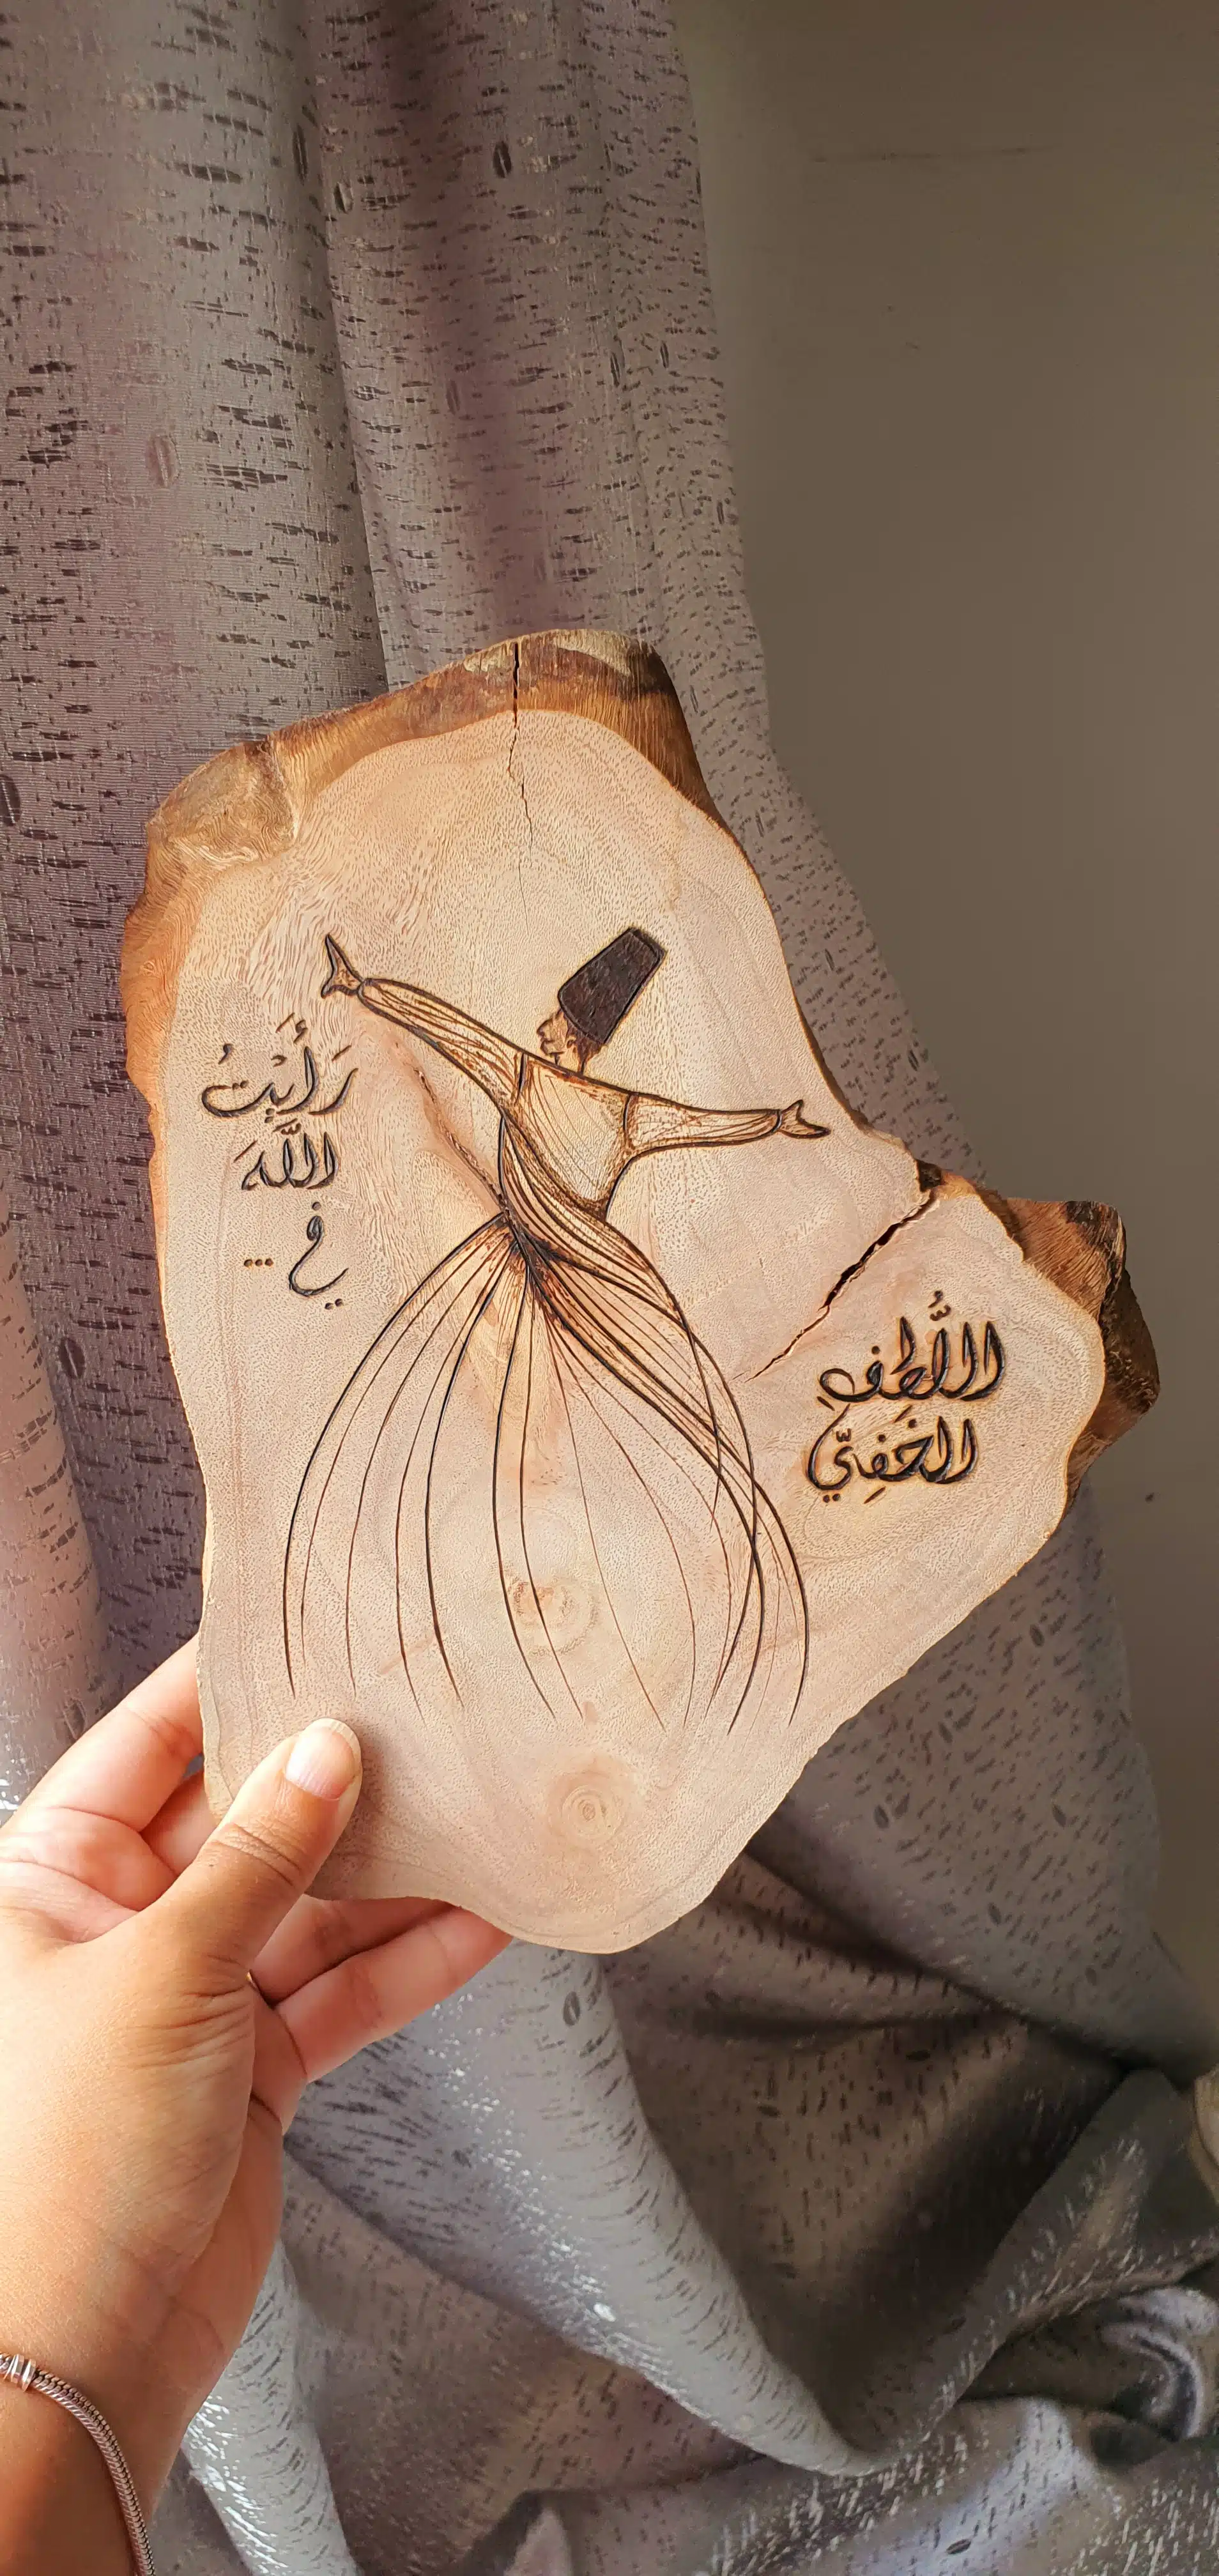 رَأَيْتُ
اللَّهَ
في ...
اللُّطفِ
الخَفِيِّ